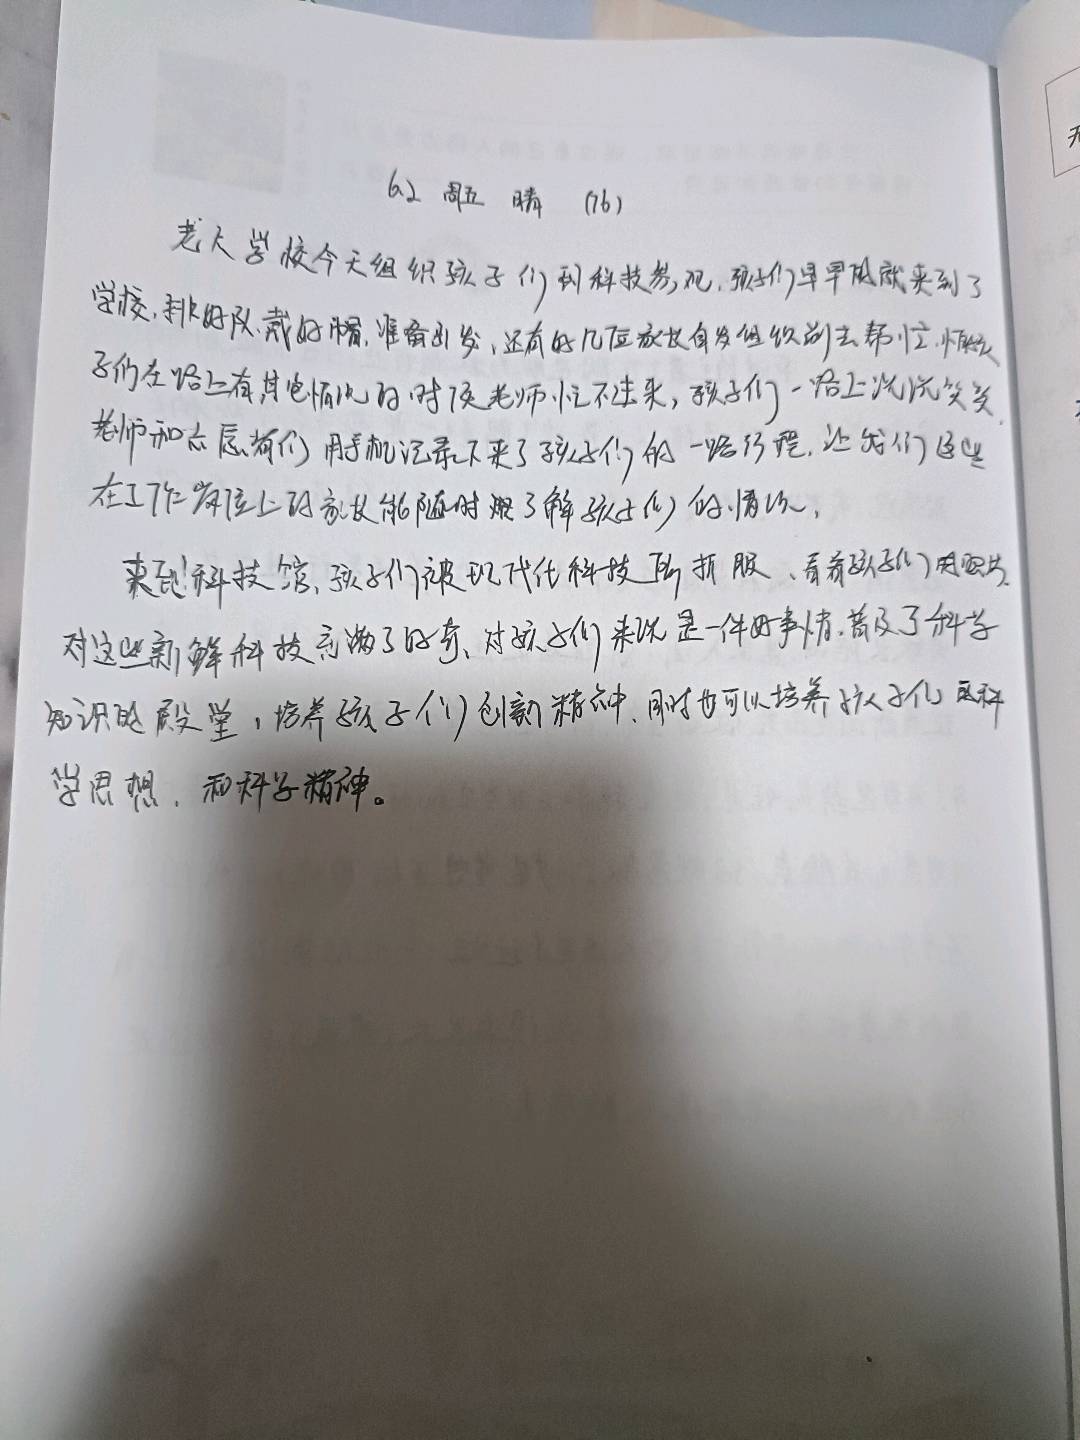 6.2 周五 晴 (76)
老大学校今天组织孩子们到科技参观,孩子们早早的就来到了
学校,排好队,戴好帽,准备出发,还有好几位家长自发组织前去帮忙,怕孩
子们在路上有其它情况的时候老师忙不过来,孩子们一路上说说笑笑,
老师和志愿者们用手机记录下来了孩子们的一路行程,让我们这些
在工作岗位上的家长能随时了解孩子们的情况,
来到科技馆,孩子们被现代化科技所折服、看着孩子们的照片,
对这些新鲜科技充满了好奇、对孩子们来说是一件好事情,普及了科学
知识的殿堂,培养孩子们创新精神、同时也可以培养孩子们的科
学思想、和科学精神。